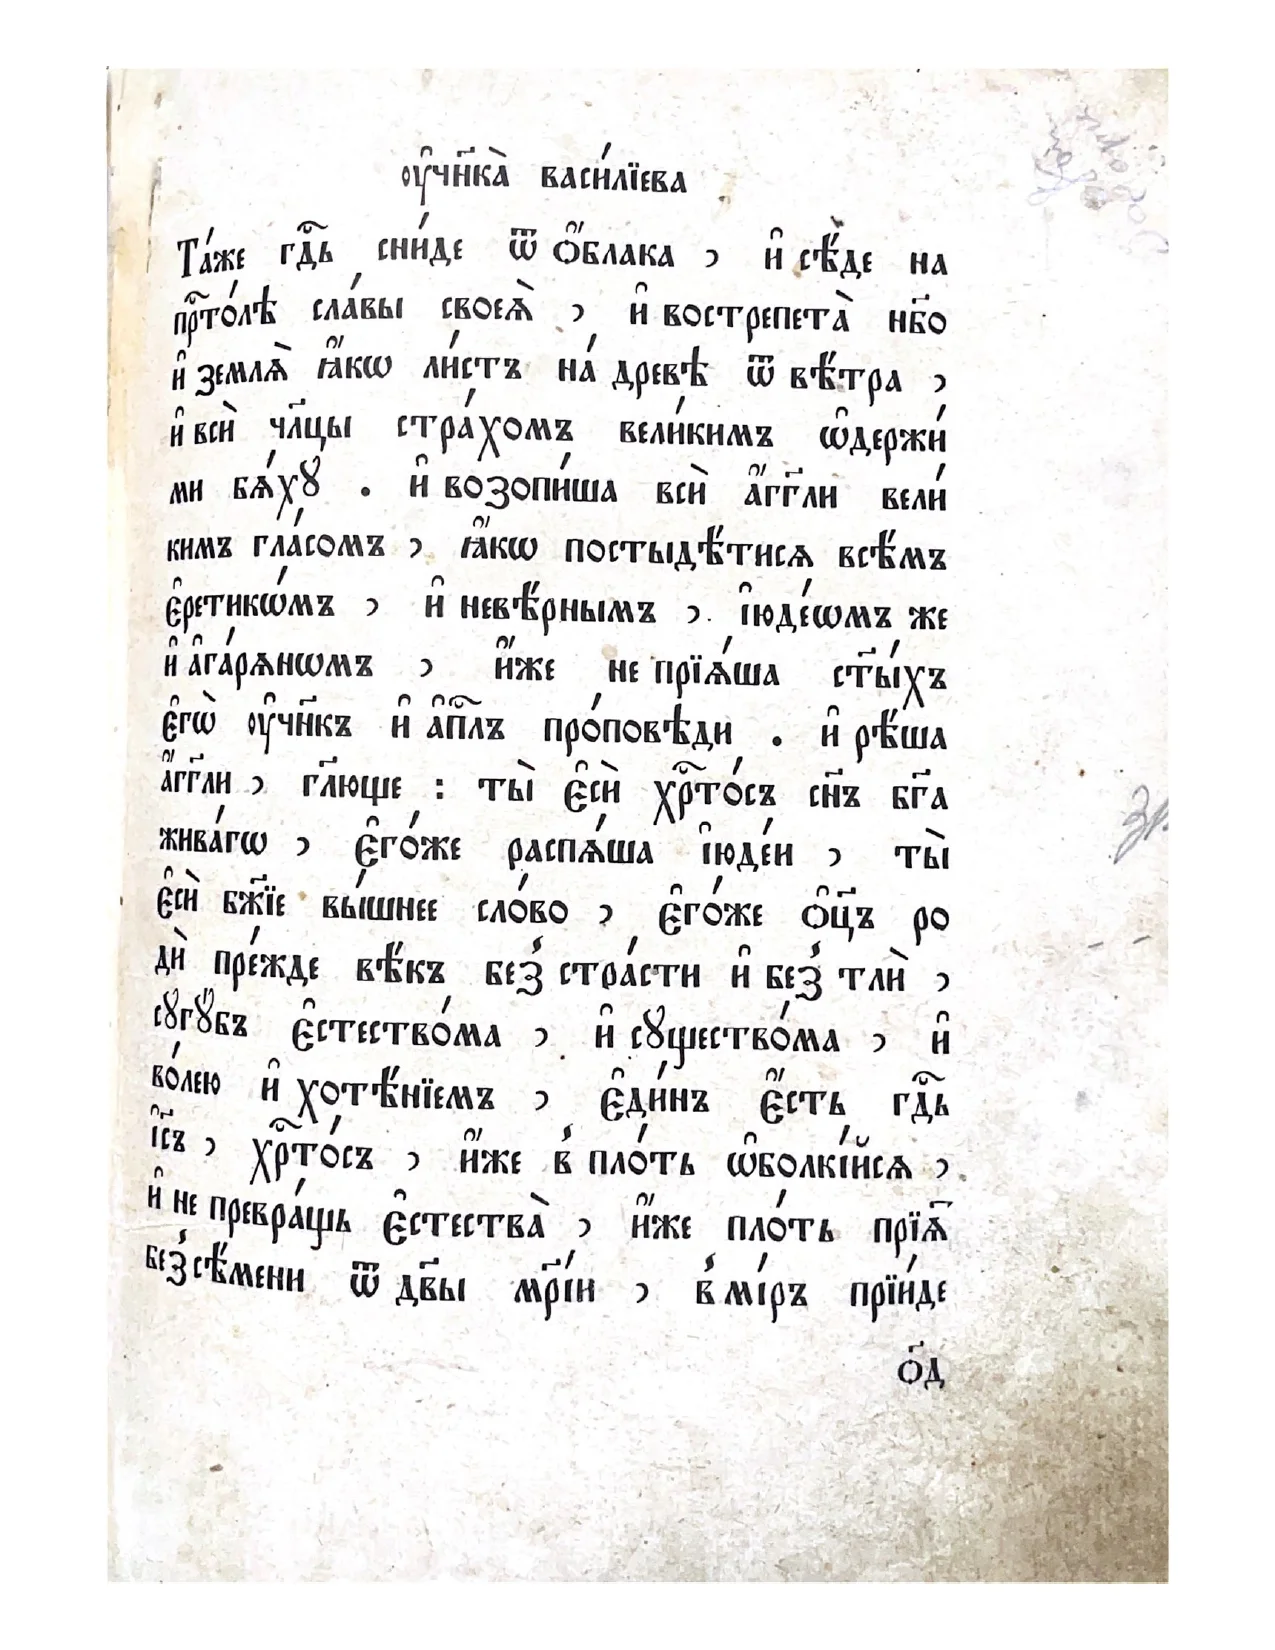 ᲂу҆чн҃ка̀ васи́лїева
Та́же гдⷭ҇ь сни́де ѿ ѻ҆́блака , и҆ сѣ́де на
прⷭ҇то́лѣ сла́вы своеѧ̀ , и҆ вострепета̀ нб҃о
и҆ землѧ̀ ꙗ҆́кѡ ли́стъ на́ древѣ ѿ вѣ́тра ,
и҆ всѝ чл҃цы стра́хомъ вели́кимъ ѡ҆держи́
ми бѧ́хꙋ . и҆ возопи́ша всѝ а҆́гг҃ли вели́
кимъ гла́сомъ , ꙗ҆́кѡ постыдѣ́тисѧ всѣ́мъ
є҆ретикѡ́мъ , и҆ невѣ́рнымъ , і҆юде́ѡмъ же
и҆ а҆гарѧ́нѡмъ , и҆́же не прїѧ́ша ст҃ы́хъ
є҆гѡ̀ ᲂу҆чн҃къ и҆ а҆пⷭ҇лъ про́повѣди . и҆ рѣ́ша
а҆́гг҃ли , гл҃юще : ты̀ є҆сѝ хрⷭ҇то́съ сн҃ъ бг҃а
жива́гѡ , є҆го́же распѧ́ша і҆юде́и , ты̀
є҆сѝ бж҃їе вы́шнее сло́во , є҆го́же ѻ҆ц҃ъ ро
дѝ пре́жде вѣ́къ без̾ стра́сти и҆ без̾ тлѝ ,
сꙋгꙋ́бъ є҆стество́ма , и҆ сꙋщество́ма , и҆
во́лею и҆ хотѣ́нїемъ , є҆ди́нъ є҆́сть гдⷭ҇ь
і҆с҃ъ , хрⷭ҇то́съ , и҆́же в̾ пло́ть ѡ҆болкі́йсѧ ,
и҆ не превра́щь є҆стества̀ , и҆́же пло́ть прїѧ҃
без̾ сѣ́мени ѿ дв҃ы мр҃і́и , в̾ мі́ръ прїи́де
ѻ҃д